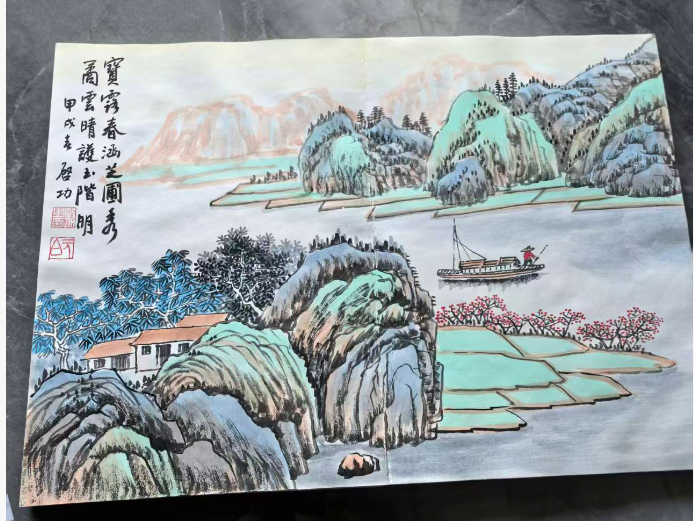 寶露春涵芝圃秀
矞雲晴護玉階明
甲戌春啓功